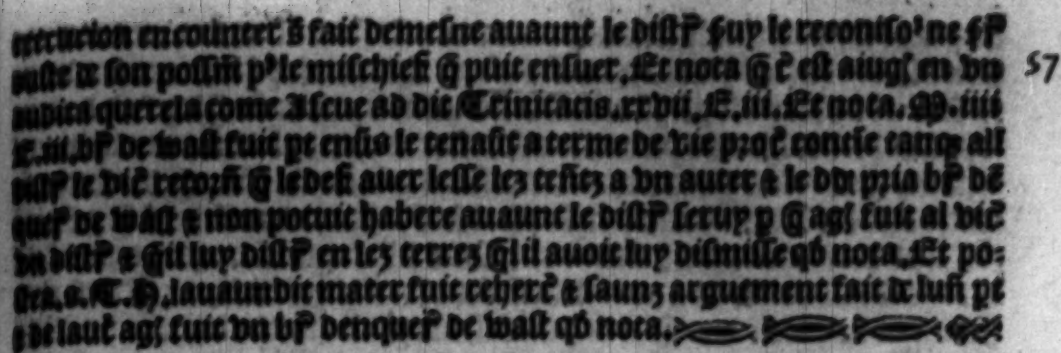 execucion encountert s̃ fait demesne auaunt le distr̃ suy le reconiso' ne sr̃
57
iuste de son possm̃ p' le mischief q̃ puit ensuer. Et nota q̃ c̃ est aiugs en vn
audita querela come Ascue ad dit Trinitatis. xxvii. E. iii. Et nota. M. iiii
E. iii. br̃ de wast fuit pt ensus le tenãt a terme de vie proc̃ contie tanq; all
distr̃ le vic̃ retorñ q̃ le def̃ auer lesse lez teñtz a vn auter & le ddt pria br̃ dẽ
quer̃ de wast & non potuit habere auaunt le distr̃ seruy p q̃ ags fuit al vic̃
vn distr̃ & q̃il luy distr̃ en lez terrez q̃l il auoit luy dismisse qd̃ nota. Et po=
stea. s. T. H. lauaundit mater fuit reherc̃ & saunz arguement fait de lun̄ pt
& de laut̃ ags fuit vn br̃ denquer̃ de wast qd̃ nota.